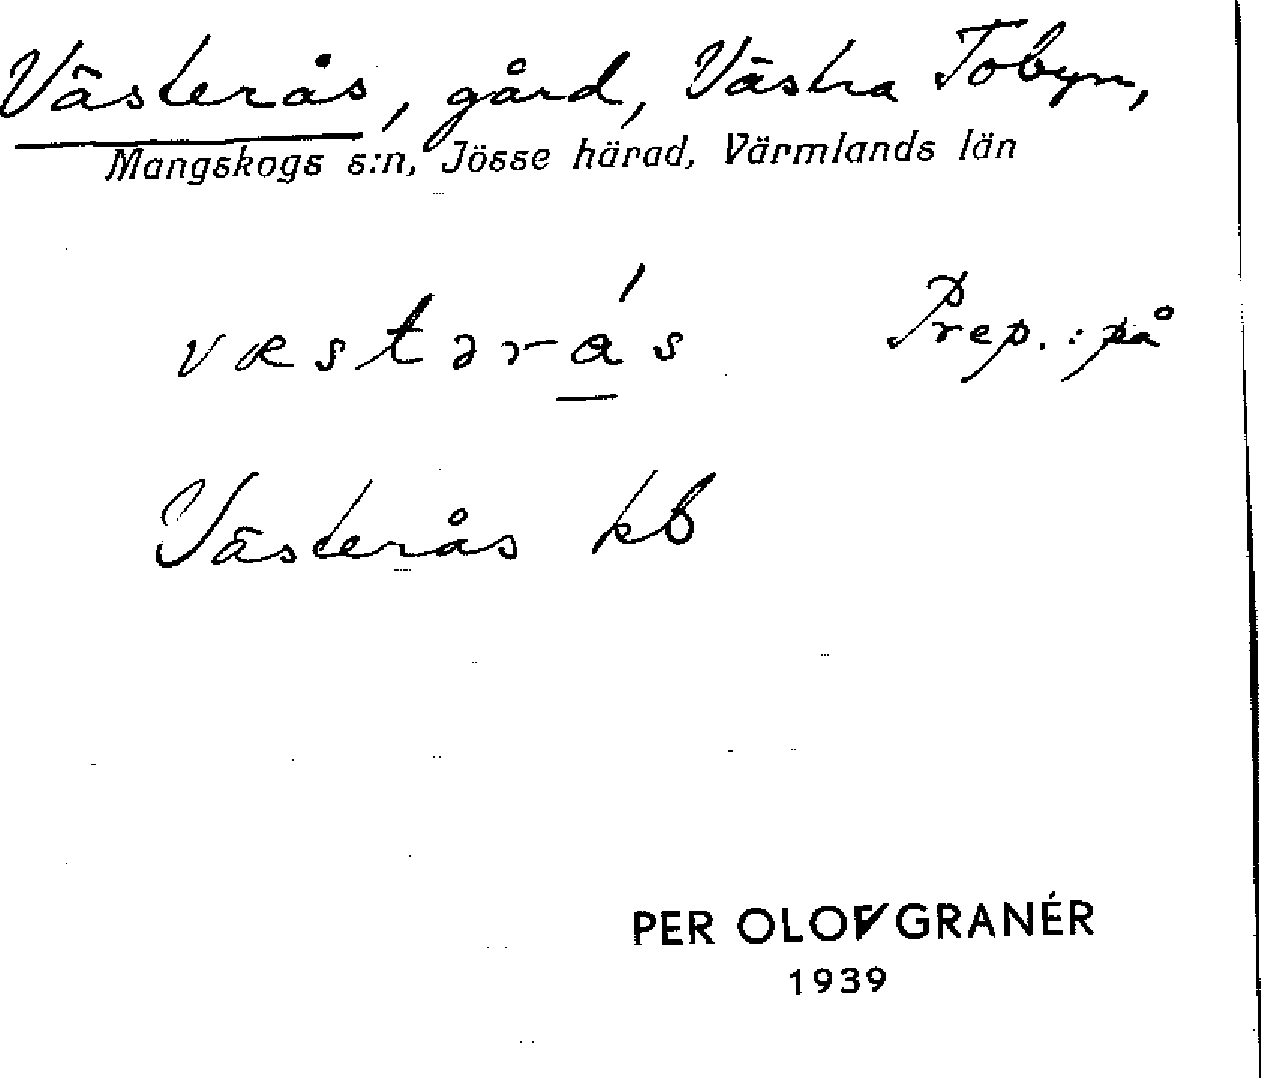 Västerås, gård, Västra Tobyn,
Mangskogs s:n, Jösse härad, Värmlands län
væstərás Prep.: på
Västerås kb
PER OLOV GRANÉR
1939